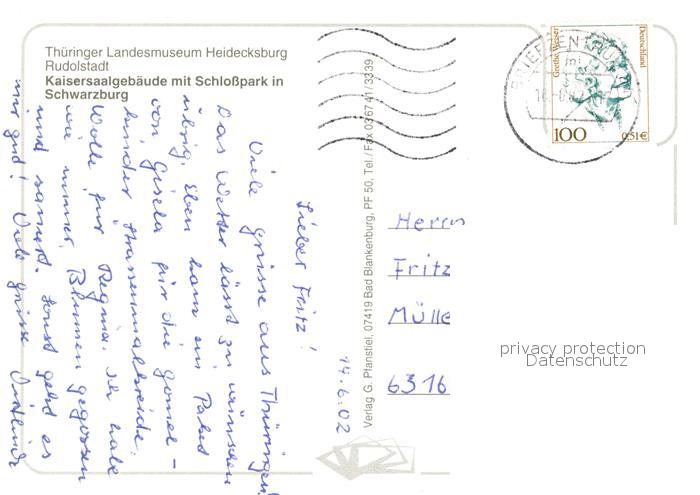 Thüringer Landesmuseum Heidecksburg
Rudolstadt
Kaisersaalgebäude mit Schloßpark in
Schwarzburg
14.6.02
Lieber Fritz!
Viele grüsse aus Thüringen!
Das Wetter lässt zu wünschen
übrig. Eben kam ein Paket
von Gisela für die
kinder Strassenmalkreide.
Wolle für Regina. ich habe
wie immer Blumen gegossen
und sonst geht es
mir gut! Viele grüsse
Verlag G. Pfanstiel, 07419 Bad Blankenburg, PF 50, Tel./Fax 036741/3339
Grethe Weiser
Deutschland
100
0,51€
BRIEFZENTRUM
Herrn
Fritz
Mülle
6316
privacy protection
Datenschutz